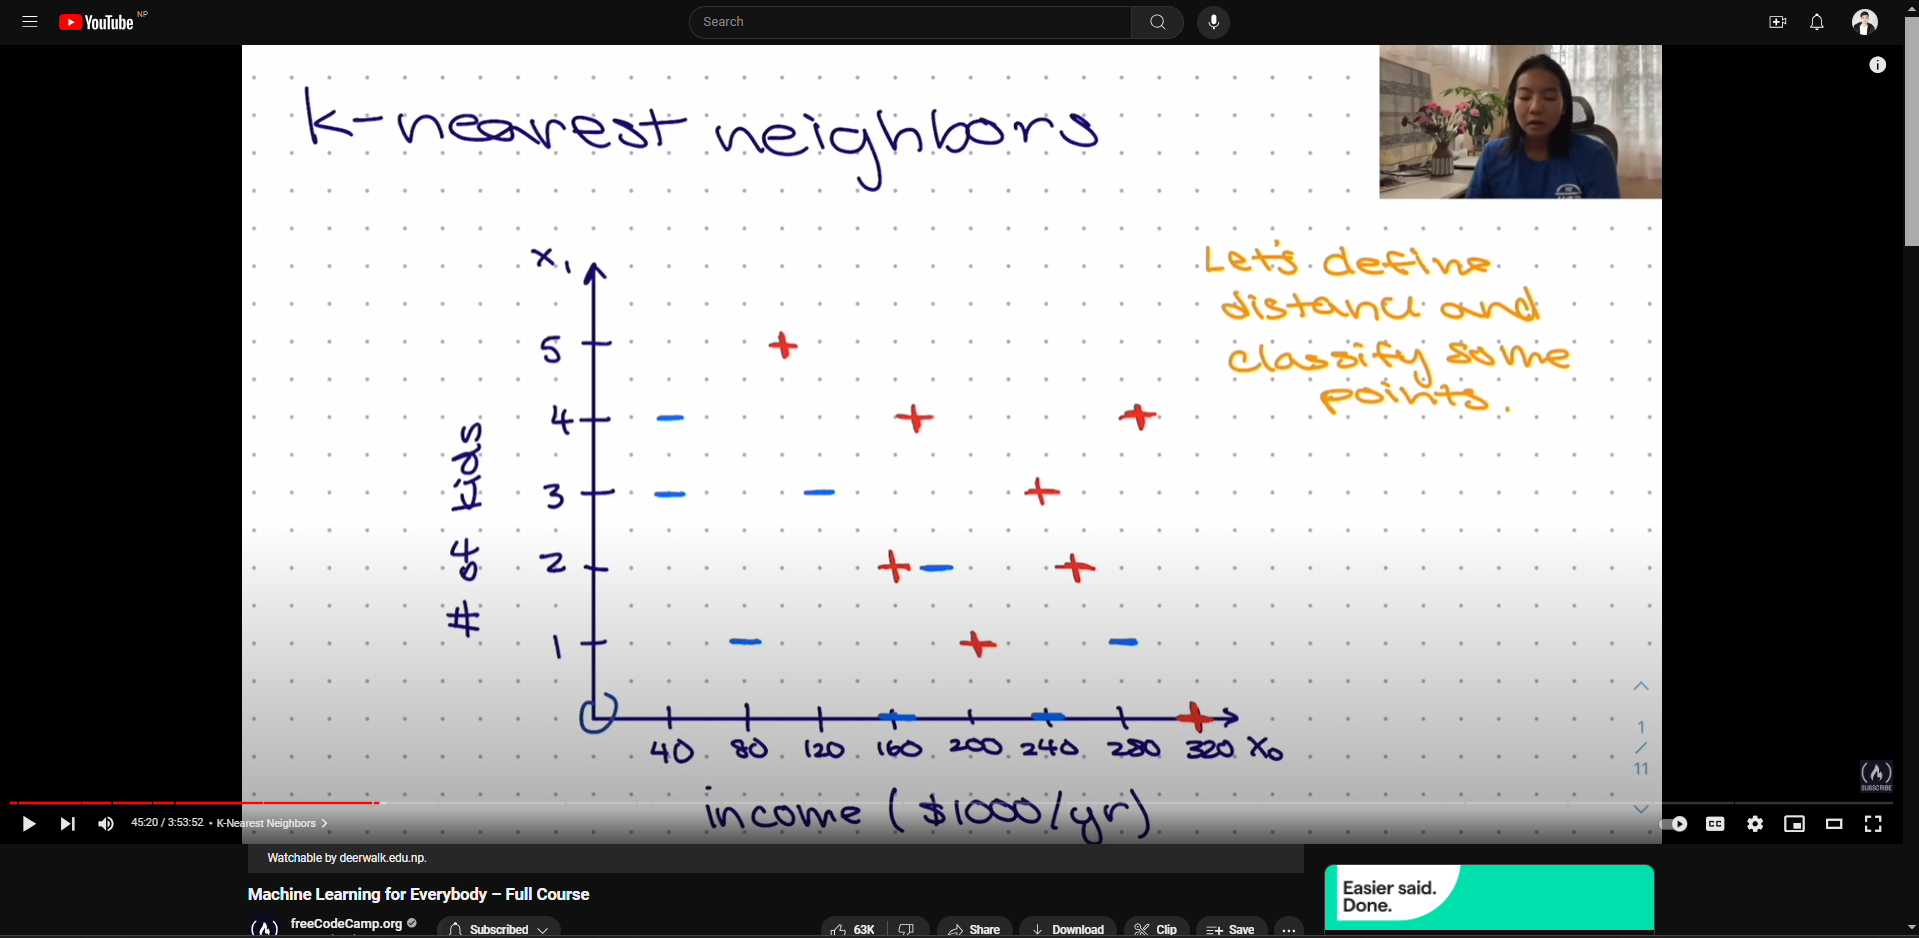 YouTube NP
Search
k-nearest neighbors
Let's define
distance and
classify some
points.
x₁
5
4
3
2
1
# of kids
40 80 120 160 200 240 280 320 x₀
income ($1000/yr)
1
/
11
SUBSCRIBE
45:20 / 3:53:52 • K-Nearest Neighbors
CC
Watchable by deerwalk.edu.np.
Machine Learning for Everybody – Full Course
freeCodeCamp.org
Subscribed
63K
Share
Download
Clip
Save
Easier said.
Done.